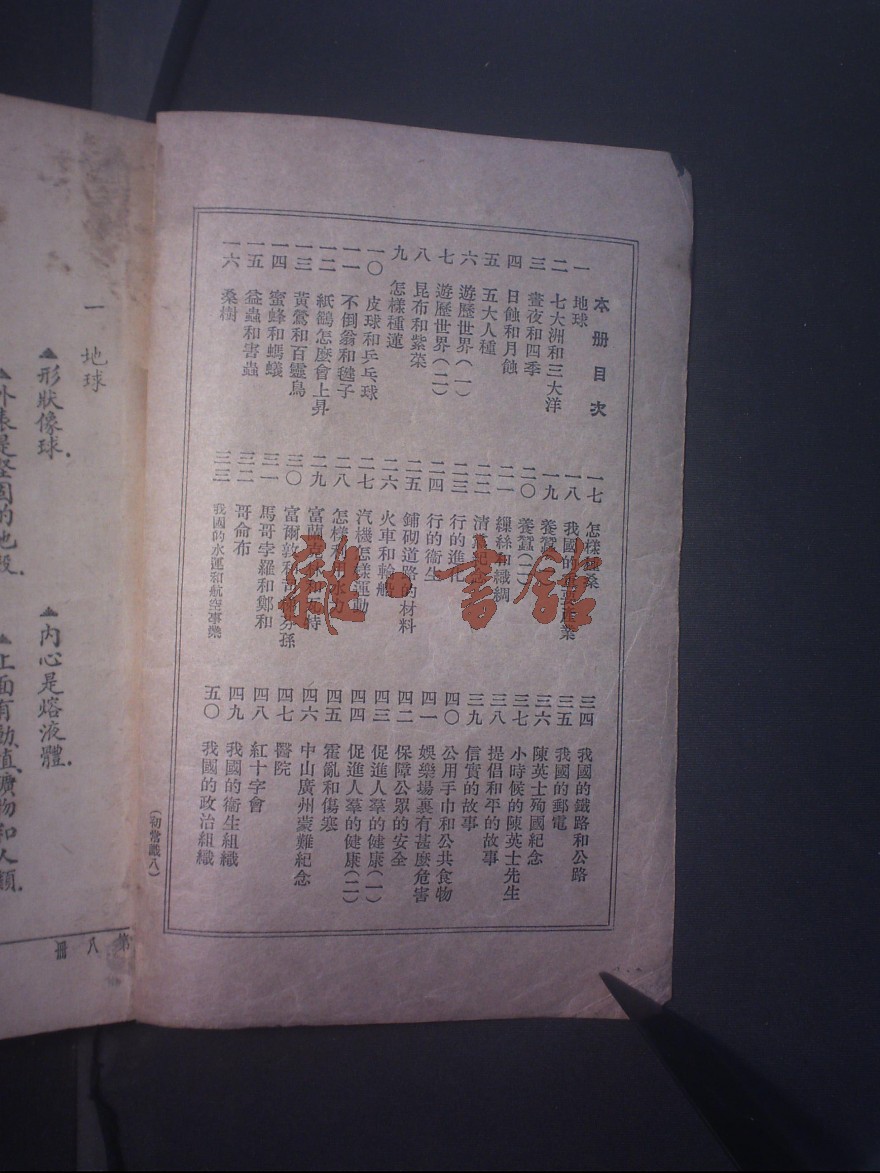 本册目次
一 地球
二 七大洲和三大洋
三 晝夜和四季
四 日蝕和月蝕
五 五大人種
六 遊歷世界(一)
七 遊歷世界(二)
八 昆布和紫菜
九 怎樣種蓮
一〇 皮球和乒乓球
一一 不倒翁和毽子
一二 紙鷂怎麼會上昇
一三 黃鶯和百靈鳥
一四 蜜蜂和螞蟻
一五 益蟲和害蟲
一六 桑樹
一七 怎樣種桑
一八 我國的重要產業
一九 養蠶(一)
二〇 養蠶(二)
二一 繅絲和織綢
二二 清黨紀念
二三 行的進化
二四 行的衞生
二五 鋪砌道路的材料
二六 火車和輪船
二七 汽機怎樣運動
二八 怎樣利用水力
二九 富蘭克林和瓦特
三〇 富爾敦和司蒂芬孫
三一 馬哥孛羅和鄭和
三二 哥侖布
三三 我國的水運和航空事業
三四 我國的鐵路和公路
三五 我國的郵電
三六 陳英士殉國紀念
三七 小時候的陳英士先生
三八 提倡和平的故事
三九 信實的故事
四〇 公用手巾和公共食物
四一 娛樂場裏有甚麼危害
四二 保障公眾的安全
四三 促進人羣的健康(一)
四四 促進人羣的健康(二)
四五 霍亂和傷寒
四六 中山廣州蒙難紀念
四七 醫院
四八 紅十字會
四九 我國的衞生組織
五〇 我國的政治組織
(初常識八)
一 地球
▲形狀像球.
▲內心是熔液體.
▲外表是堅固的地殼.
▲上面有動植礦物和人類.
第八冊
龍·書館